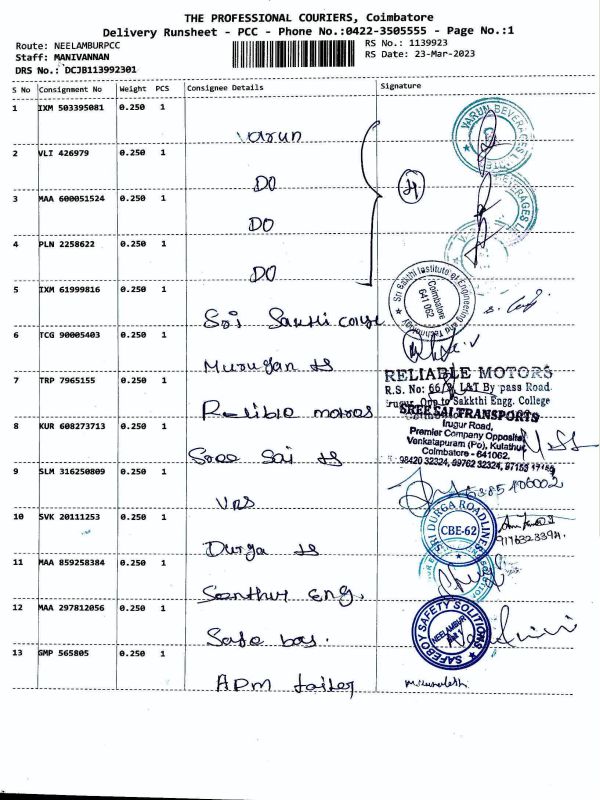 THE PROFESSIONAL COURIERS, Coimbatore
Delivery Runsheet - PCC - Phone No.:0422-3505555 - Page No.:1
Route: NEELAMBURPCC
RS No.: 1139923
Staff: MANIVANNAN
RS Date: 23-Mar-2023
DRS No.: DCJB113992301
S No Consignment No Weight PCS Consignee Details Signature
1 IXM 503395081 0.250 1
Varun
VARUN BEVERAGES
2 VLI 426979 0.250 1
DO
4
3 MAA 600051524 0.250 1
DO
4 PLN 2258622 0.250 1
DO
5 IXM 61999816 0.250 1
Sri Sakthi Institute of Engineering and Technology
Coimbatore
641 062
Sri Sakthi
6 TCG 90005403 0.250 1
Murugan ts
7 TRP 7965155 0.250 1
RELIABLE MOTORS
R.S. No: 66/ L&T By pass Road
Irugur, Opp to Sakkthi Engg. College
Relible motros
8 KUR 608273713 0.250 1
SREE SAI TRANSPORTS
Irugur Road,
Premier Company Opposite
Venkatapuram (Po), Kulathur,
Coimbatore - 641062.
98420 32324, 69762 32324,
Sree Sai ts
9 SLM 316250809 0.250 1
VRS
10 SVK 20111253 0.250 1
SRI DURGA ROADLINES
CBE-62
Durga ts
11 MAA 859258384 0.250 1
Eng.
12 MAA 297812056 0.250 1
SAFEBOY SAFETY SOLUTIONS
NEELAMBUR
Safe boy.
13 GMP 565805 0.250 1
APM